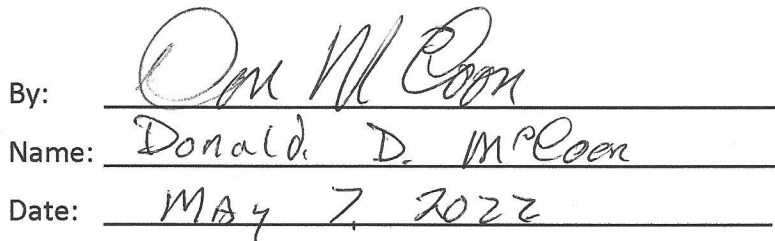 By: Don McCoon
Name: Donald. D. McCoon
Date: MAY 7, 2022